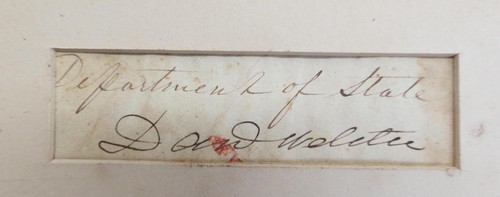 Department of State
Danl Webster